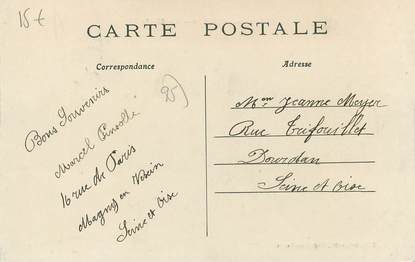 15€
CARTE POSTALE
Correspondance
Adresse
25)
Bons Souvenirs
Marcel
16 rue de Paris
Magny en Vexin
Seine et Oise
Mme Jeanne Meyer
Rue Trifouillet
Dourdan
Seine et Oise